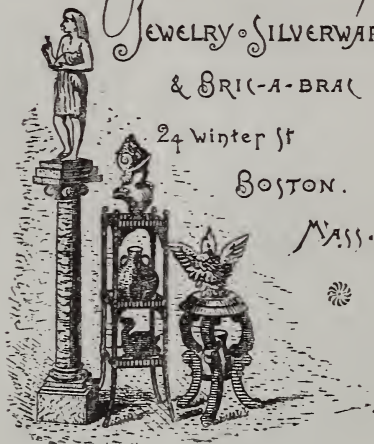 JEWELRY · SILVERWAR
& BRIC-A-BRAC
24 Winter St
BOSTON.
MASS.